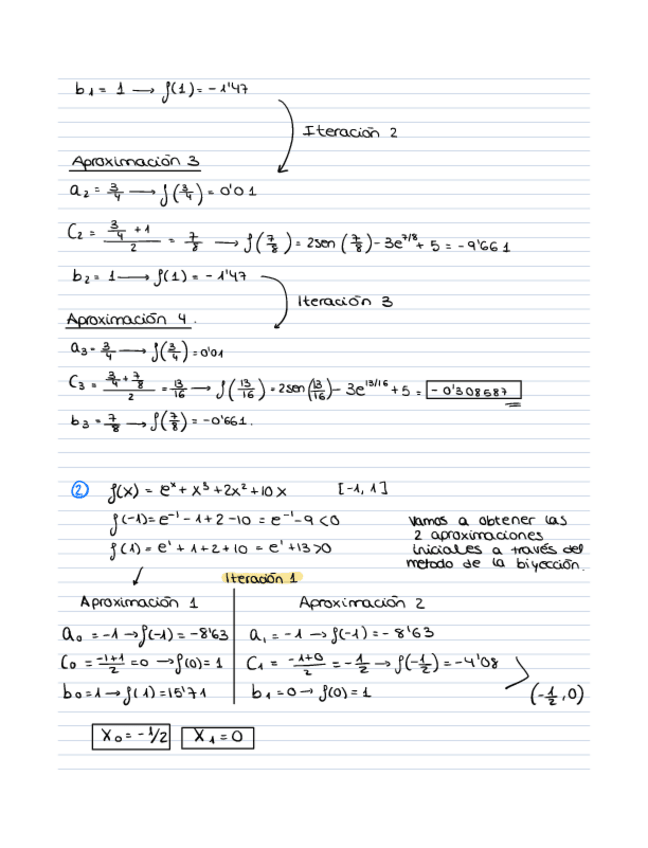 b₁ = 1 → f(1) = -1'47
Iteración 2
Aproximación 3
a₂ = 3/4 → f(3/4) = 0'01
C₂ = (3/4 + 1)/2 = 7/8 → f(7/8) = 2sen(7/8) - 3e^(7/8) + 5 = -0'661
b₂ = 1 → f(1) = -1'47
Iteración 3
Aproximación 4.
a₃ = 3/4 → f(3/4) = 0'01
C₃ = (3/4 + 7/8)/2 = 13/16 → f(13/16) = 2sen(13/16) - 3e^(13/16) + 5 = -0'308587
b₃ = 7/8 → f(7/8) = -0'661.
② f(x) = eˣ + x³ + 2x² + 10x [-1, 1]
f(-1) = e⁻¹ - 1 + 2 - 10 = e⁻¹ - 9 < 0
f(1) = e¹ + 1 + 2 + 10 = e¹ + 13 > 0
Vamos a obtener las
2 aproximaciones
iniciales a través del
metodo de la biyección.
Iteración 1
Aproximación 1
a₀ = -1 → f(-1) = -8'63
C₀ = (-1+1)/2 = 0 → f(0) = 1
b₀ = 1 → f(1) = 15'71
Aproximación 2
a₁ = -1 → f(-1) = -8'63
C₁ = (-1+0)/2 = -1/2 → f(-1/2) = -4'08
b₁ = 0 → f(0) = 1
(-1/2, 0)
X₀ = -1/2 X₁ = 0